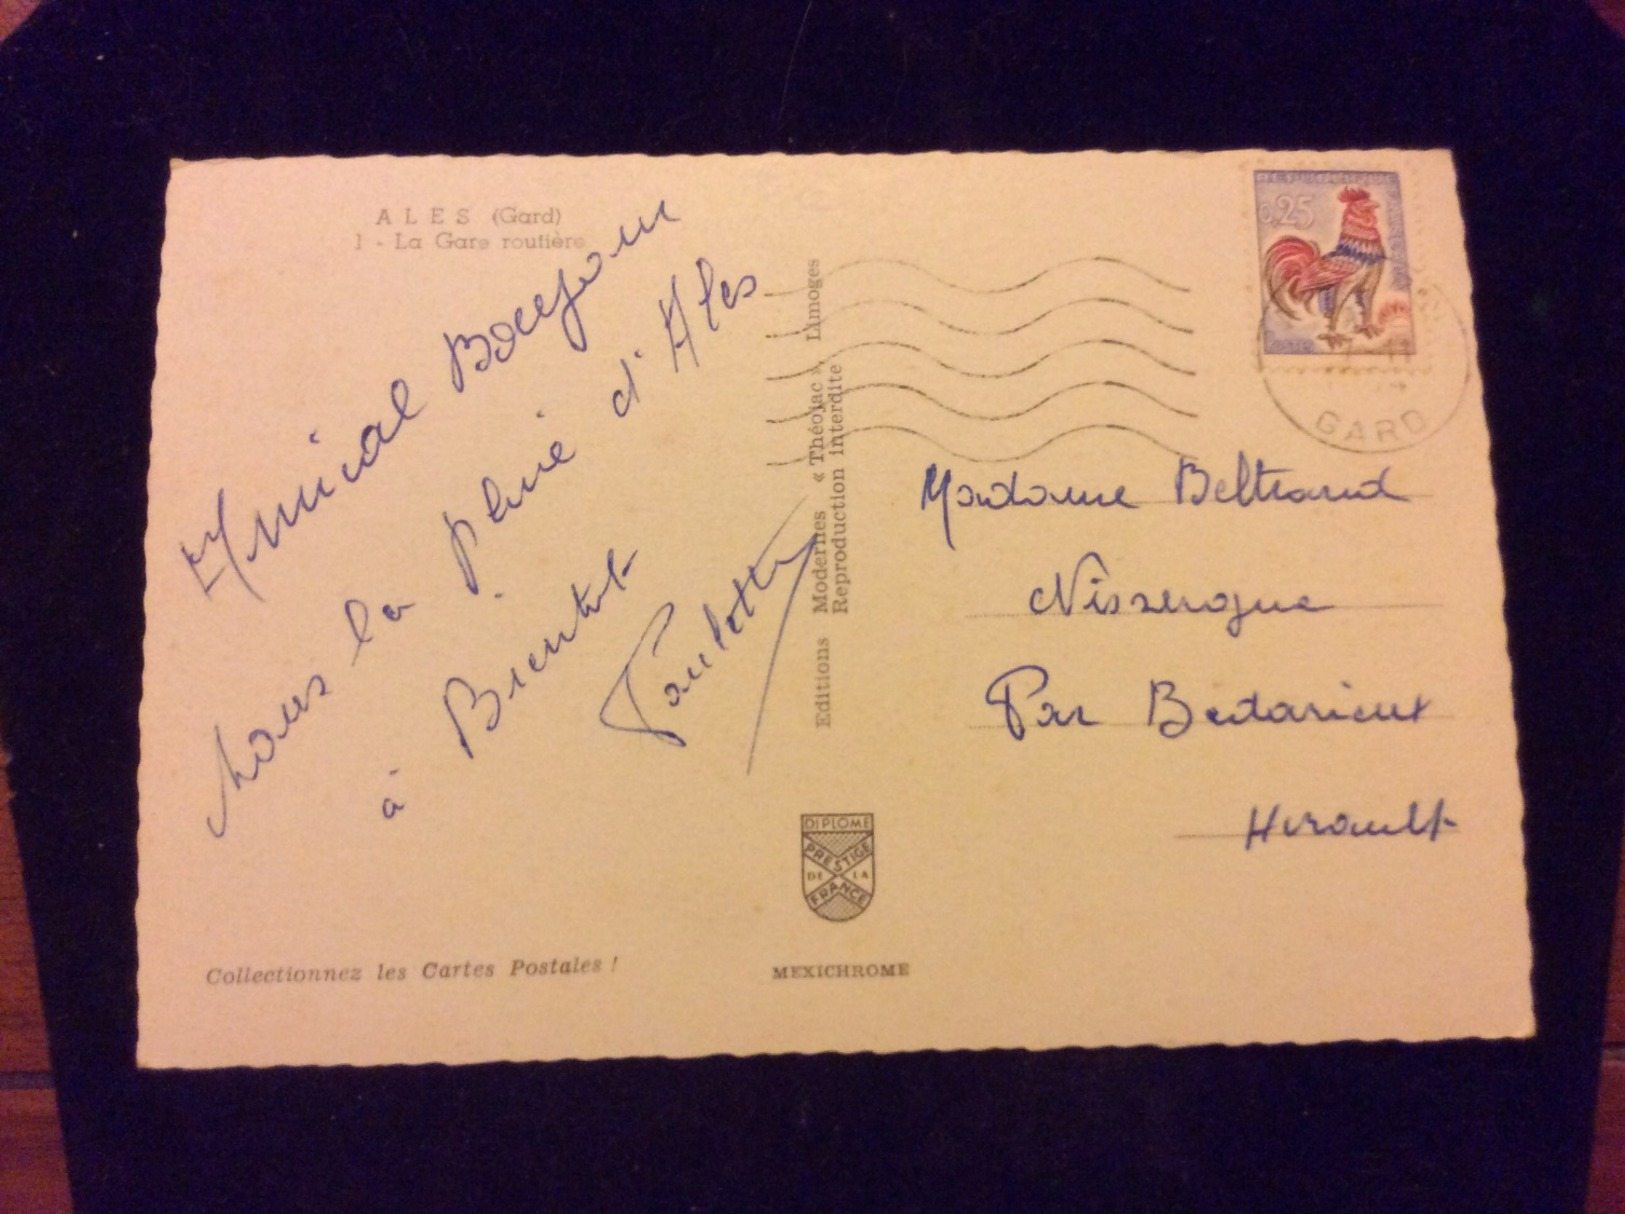 ALES (Gard)
1 - La Gare routière
Amical Bonjour
sous la pluie d'Ales
à Bientot
Paulette
Editions Modernes « Théojac », Limoges
Reproduction interdite
0,25
GARD
Madame Beltrand
Nissergue
Par Bedarieux
Herault
DIPLOME
PRESTIGE
DE LA
FRANCE
Collectionnez les Cartes Postales !
MEXICHROME